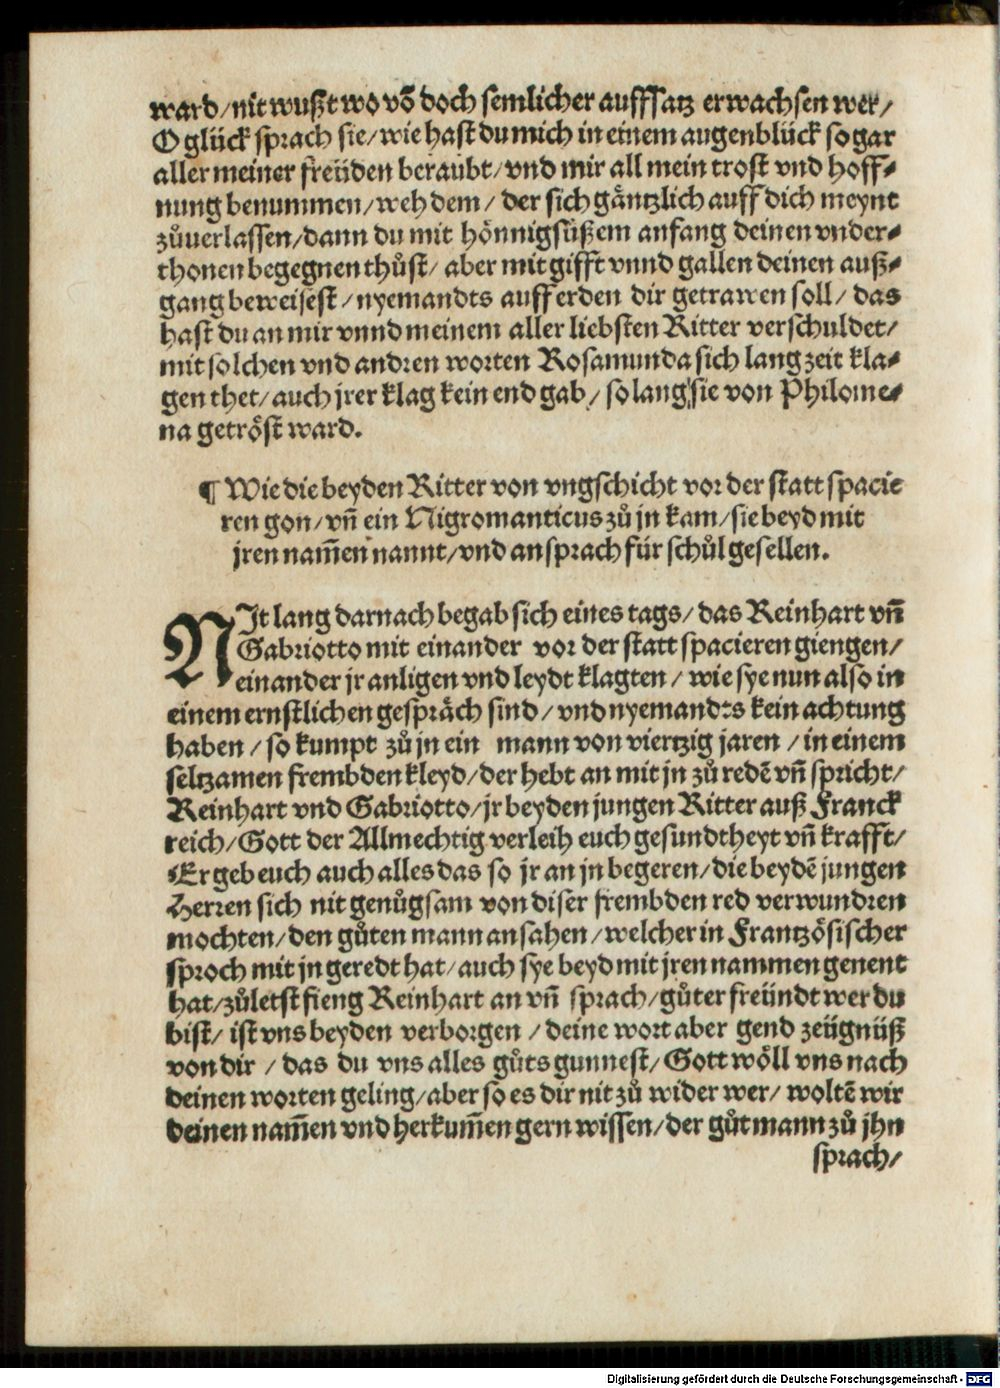 ward/nit wußt wo võ doch semlicher auffsatz erwachsen wer/
O glück sprach sie/wie hast du mich in einem augenblück so gar
aller meiner freüden beraubt/vnd mir all mein trost vnd hoff-
nung benummen/weh dem/ der sich gäntzlich auff dich meynt
zůuerlassen/dann du mit hönnigsüßem anfang deinen vnder-
thonen begegnen thůst/ aber mit gifft vnnd gallen deinen auß-
gang beweisest/nyemandts auff erden dir getrawen soll/ das
hast du an mir vnnd meinem aller liebsten Ritter verschuldet/
mit solchen vnd andren worten Rosamunda sich lang zeit kla-
gen thet/auch jrer klag kein end gab/ so lang sie von Philome-
na getröst ward.
¶ Wie die beyden Ritter von vngschicht vor der statt spacie
ren gon/vñ ein Nigromanticus zů jn kam/sie beyd mit
jren nam̃en nannt/vnd ansprach für schůlgesellen.
NIt lang darnach begab sich eines tags/das Reinhart vñ
Gabriotto mit einander vor der statt spacieren giengen/
einander jr anligen vnd leydt klagten/ wie sye nun also in
einem ernstlichen gespräch sind/vnd nyemandts kein achtung
haben/so kumpt zů jn ein mann von viertzig jaren/in einem
seltzamen frembden kleyd/der hebt an mit jn zů redẽ vñ spricht/
Reinhart vnd Gabriotto/jr beyden jungen Ritter auß Franck
reich/Gott der Allmechtig verleih euch gesundtheyt vñ krafft/
Er geb euch auch alles das so jr an jn begeren/die beydẽ jungen
Herren sich nit genůgsam von diser frembden red verwundren
mochten/den gůten mann ansahen/welcher in Frantzösischer
sproch mit jn geredt hat/auch sye beyd mit jren nammen genent
hat/zůletst fieng Reinhart an vñ sprach/gůter freündt wer du
bist/ ist vns beyden verborgen/deine wort aber gend zeügnüß
von dir/ das du vns alles gůts gunnest/Gott wöll vns nach
deinen worten geling/aber so es dir nit zů wider wer/ woltẽ wir
deinen nam̃en vnd herkum̃en gern wissen/der gůt mann zů jhn
sprach/
Digitalisierung gefördert durch die Deutsche Forschungsgemeinschaft - DFG